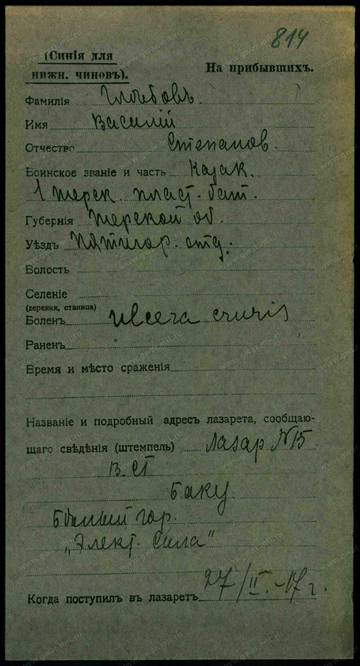 814
(Синія для
нижн. чиновъ).
На прибывшихъ.
Фамилія Глѣбовъ.
Имя Василій
Отчество Степанов.
Воинское званіе и часть Казак.
1 терск. пласт. бат.
Губернія Терской об.
Уѣздъ Пятигор. отд.
Волость
Селеніе
(деревня, станица)
Боленъ ulcera cruris
Раненъ
Время и мѣсто сраженія
Названіе и подробный адресъ лазарета, сообщаю-
щаго свѣдѣнія (штемпель) Лазар №15
В. С.
Баку
гор.
„Элект. Сила"
Когда поступил въ лазаретъ 27/II-17 г.